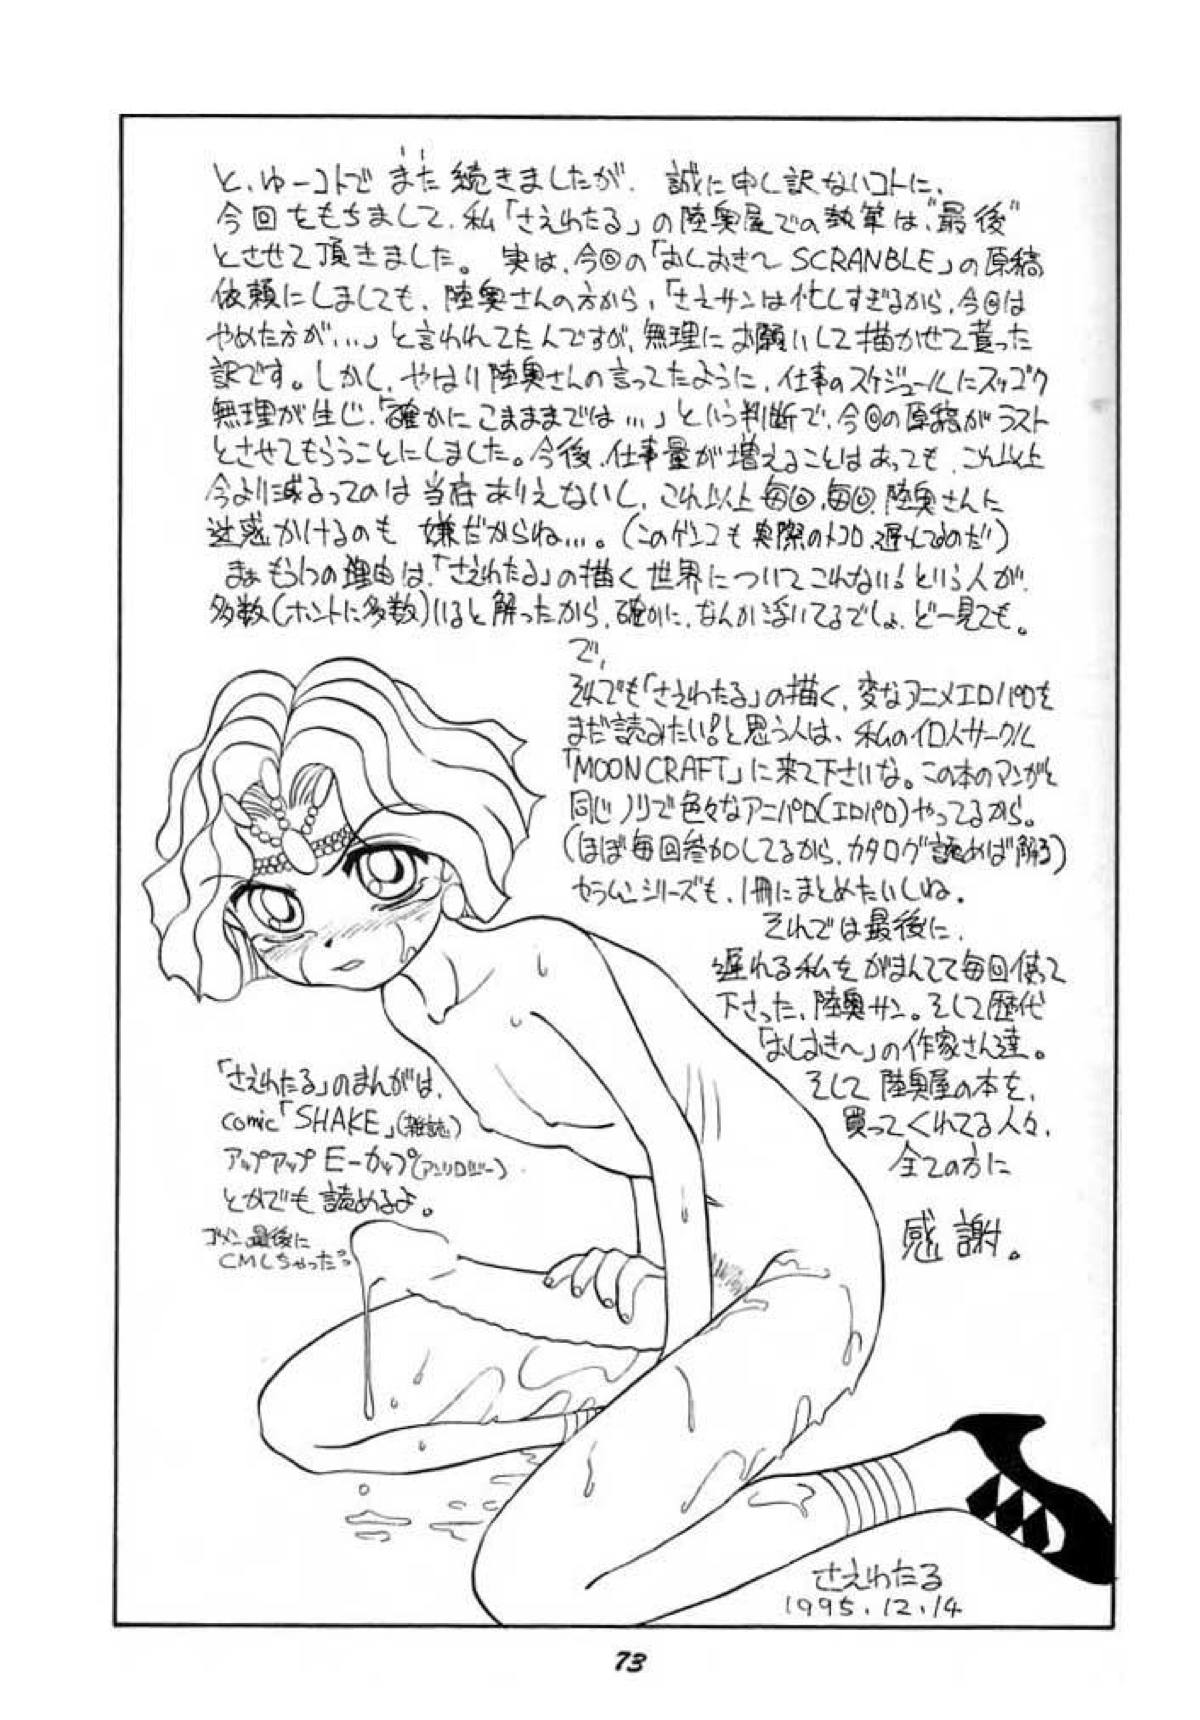 と、ゆーコトでまた続きましたが、誠に申し訳ないコトに、
今回をもちまして、私「さえわたる」の陸奥屋での執筆は、"最後"
とさせて頂きました。実は、今回の「おしおき〜SCRANBLE」の原稿
依頼にしましても、陸奥さんの方から、「さえサンは忙しすぎるから、今回は
やめた方が…」と言われてたんですが、無理にお願いして描かせて貰った
訳です。しかし、やはり陸奥さんの言ってたように、仕事のスケジュールにスッゴク
無理が生じ、「確かにこまままでは…」という判断で、今回の原稿がラスト
とさせてもらうことにしました。今後、仕事量が増えることはあっても、これ以上
今より減るってのは当存ありえないし、これ以上毎回、毎回、陸奥さんに
迷惑かけるのも嫌だからね…。(このゲンコも実際のトコロ、遅れてるのだ)
まぁもう1つの理由は、「さえわたる」の描く世界についてこれない!という人が、
多数(ホントに多数)いると解ったから、確かに、なんか浮いてるでしょ、どー見ても。
で、
それでも「さえわたる」の描く、変なアニメエロパロを
まだ読みたい!と思う人は、私の個人サークル
「MOON CRAFT」に来て下さいな。この本のマンガと
同じノリで色々なアニパロ(エロパロ)やってるから。
(ほぼ毎回参加してるから、カタログ読めば解る)
セラムンシリーズも、1冊にまとめたいしね。
それでは最後に、
遅れる私をがまんして毎回使って
下さった、陸奥サン。そして歴代
「おしおき〜」の作家さん達。
そして陸奥屋の本を、
買ってくれてる人々、
全ての方に
感謝。
「さえわたる」のまんがは、
comic「SHAKE」(雑誌)
アップアップE-カップ(アンソロジー)
とかでも読めるよ。
ゴメン、最後に
CMしちゃった
さえわたる
1995.12.14
73